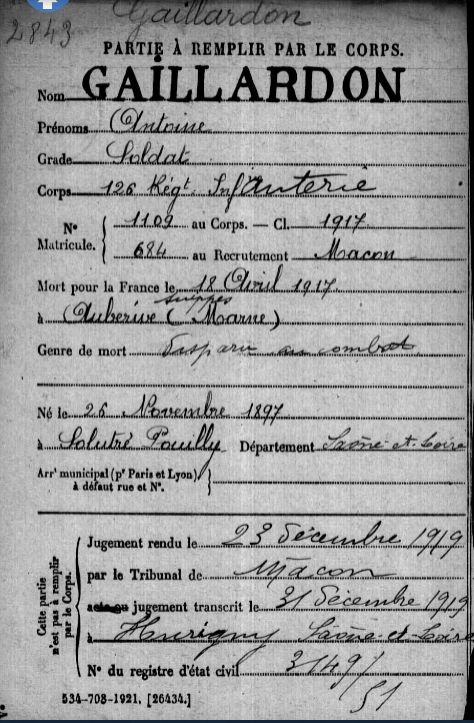 Gaillardon
2843
PARTIE À REMPLIR PAR LE CORPS.
Nom GAILLARDON
Prénoms Antoine
Grade Soldat
Corps 126 Régt Infanterie
N° Matricule. { 1109 au Corps. — Cl. 1917
684 au Recrutement Macon
Mort pour la France le 18 Avril 1917
suippes
à Auberive (Marne)
Genre de mort Disparu au combat
Né le 26 Novembre 1897
à Solutré Pouilly Département Saône-et-Loire
Arrt municipal (pr Paris et Lyon), à défaut rue et N°. }
Cette partie n'est pas à remplir par le Corps.
Jugement rendu le 23 décembre 1919
par le Tribunal de Macon
acte ou jugement transcrit le 31 décembre 1919
à Hurigny Saône-et-Loire
N° du registre d'état civil 3149/51
534-708-1921. [26434.]